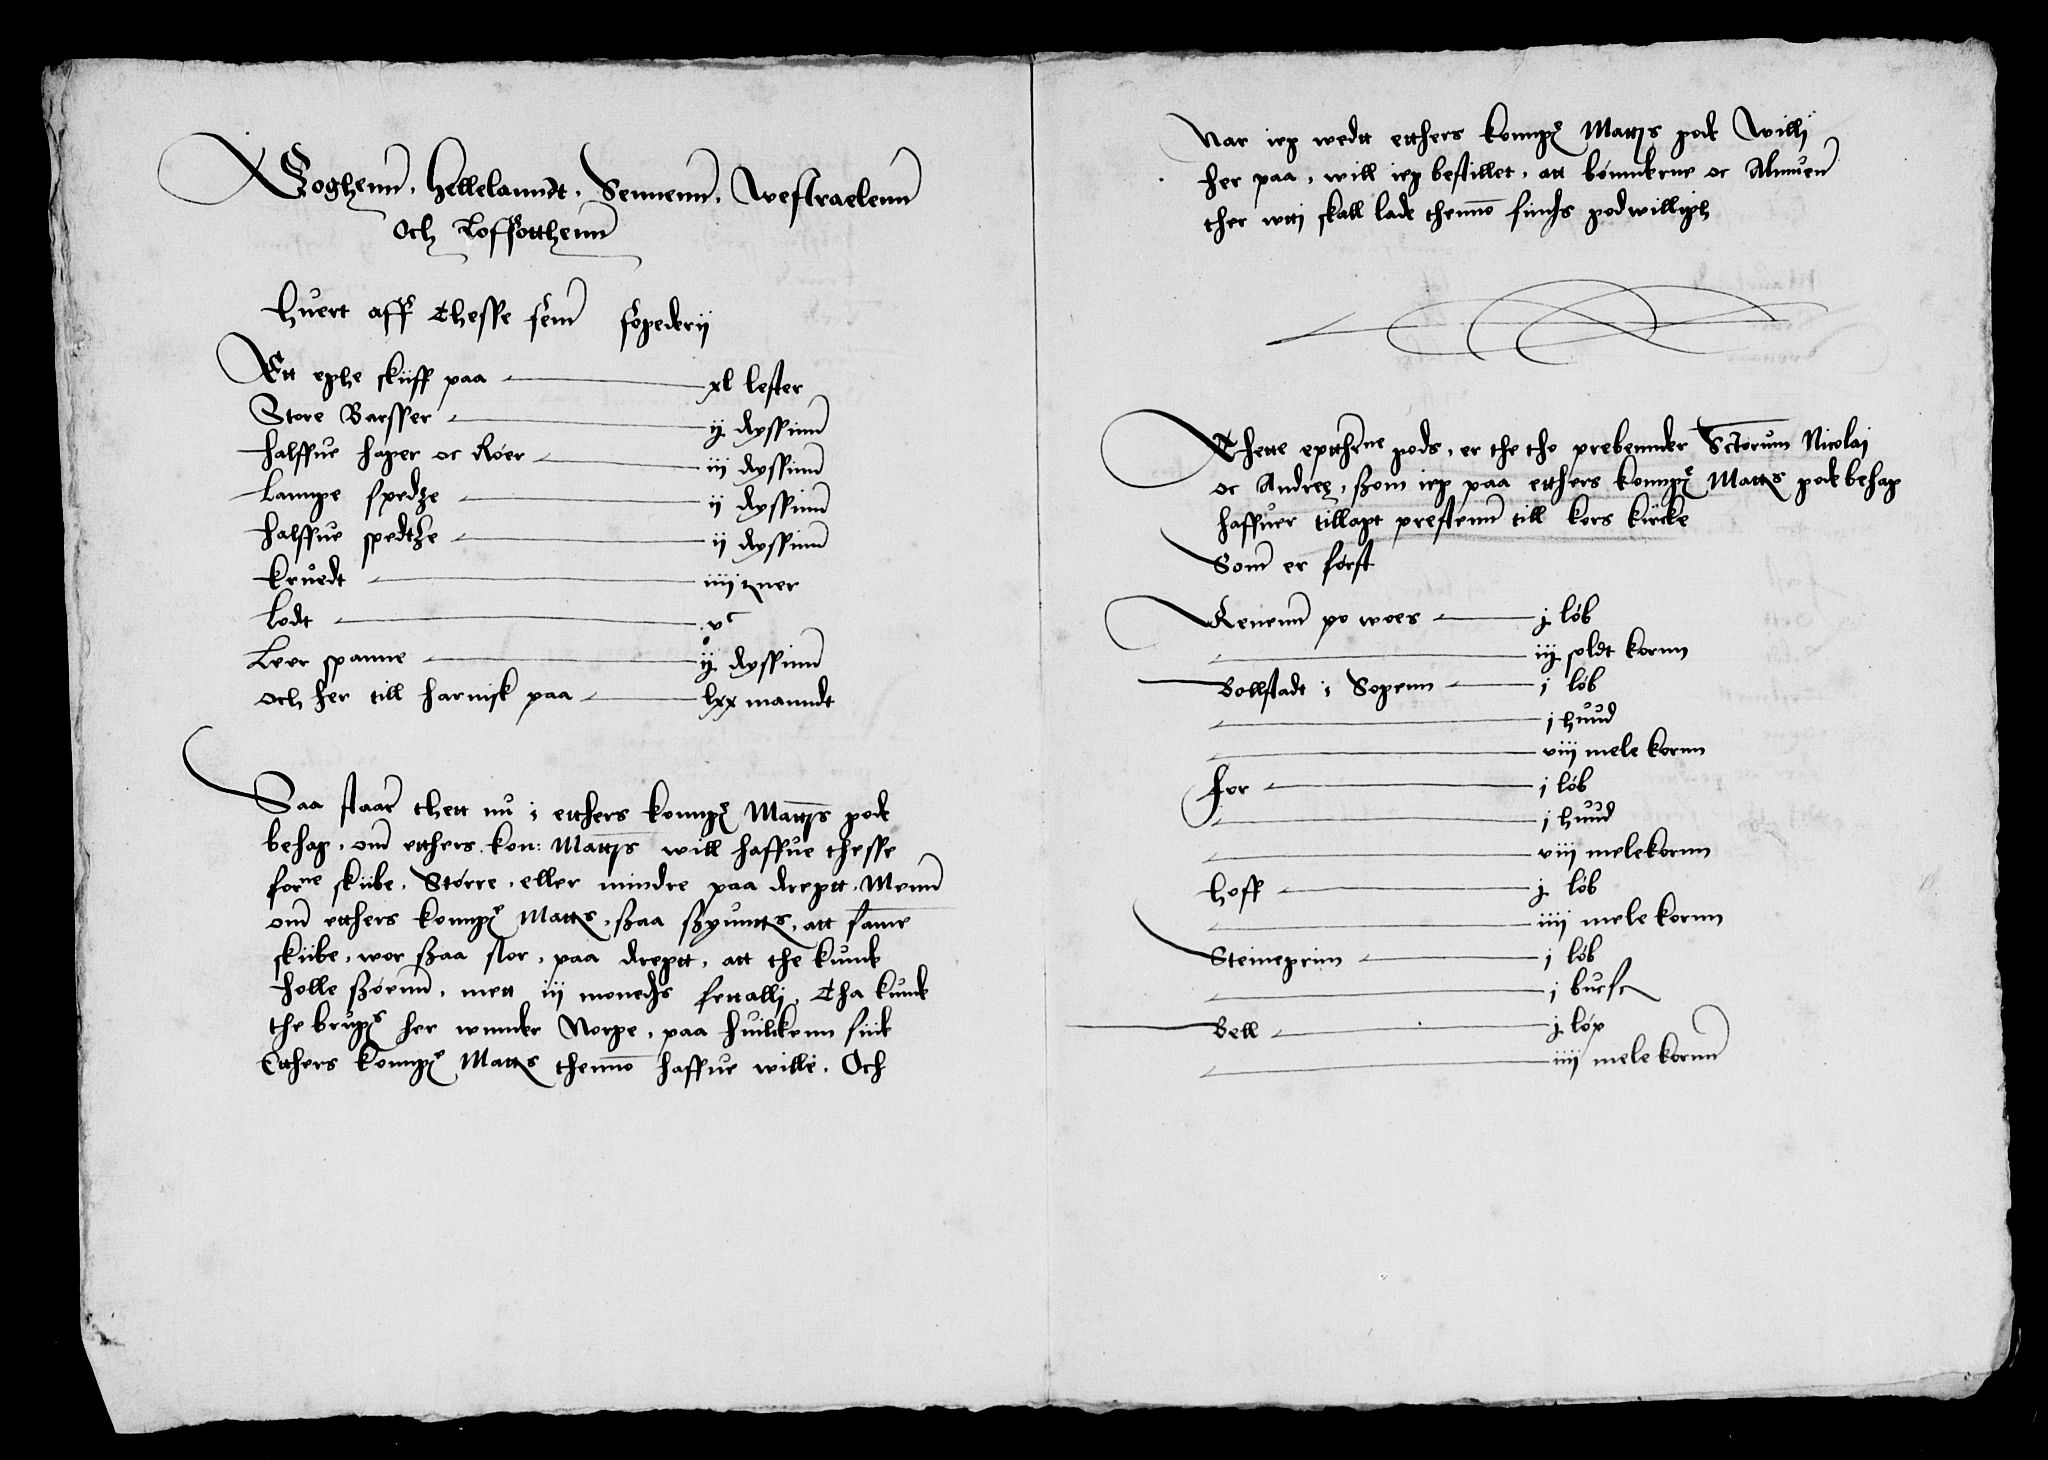 Foghenn, Hellelanndt, Sennenn, Westraelenn
Och Loffotthenn
Huert aff thesse fem fogederij
Ett eghe skiiff paa xl lester
Store Barsser ij dyssinn
Halffue hager oc Røer iij dyssinn
Lannge spedze ij dyssinn
Halffue spedtze ij dyssinn
Krudt iiij tner
Lodt vc
Leer spanne ij dyssinn
Och her till harnisk paa lxx manndt
Saa staar thett nu i etthers konnge Mattis gode
behag, om etthers kon: Mattis will haffue thesse
forne skiibe, Større, eller mindre paa dregtt, Menn
om etthers konnge Matts, ßaa ßyunts, att same
skiibe, wor ßaa stor, paa dregtt, att the kunde
holle ßøenn, mett iij moneds fettallj, Tha kunde
the brugs her wnnder Norge, paa huilckenn siide
Etthers konnge Matts thenno haffue wille. Och
Nar ieg wedtt etthers konnge Mattis gode Willj
her paa, will ieg bestillet, att bønnderne oc Almuen
ther wtti skall lade thenno finds godwilligh
Thette eptthrne gods, er the tho prebennder Sctorum Nicolai
oc Andreę, ßom ieg paa etthers konnge Matts gode behag
haffuer tillagt prestenn till kors kircke
Som er først
Renenn po woes j løb
iij soldt kornn
Bollstadt i Sogenn j løb
j huud
viij mele kornn
For j løb
j huud
viij mele kornn
Hoff j løb
iiij mele kornn
Steinegrim j løb
j bucsk
Bell j løp
iiij mele kornn